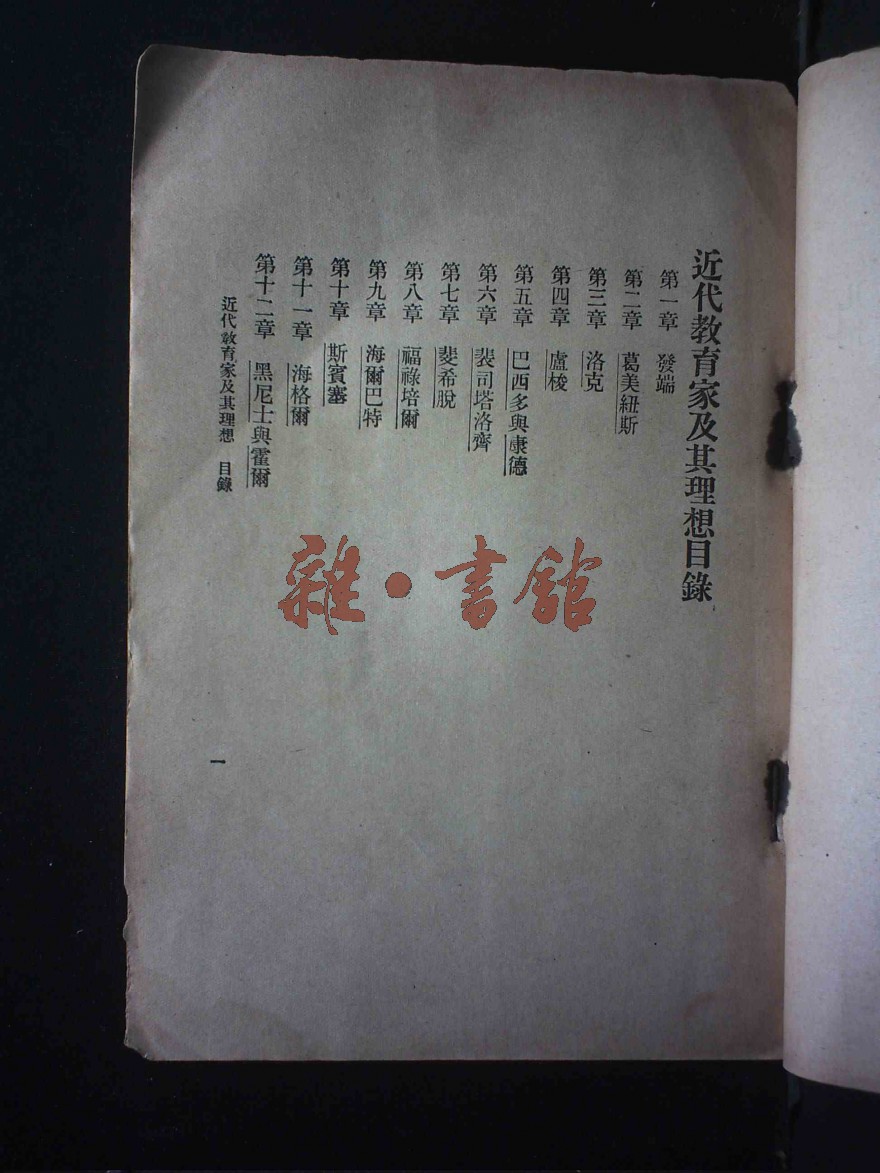 近代教育家及其理想目錄
第一章 發端
第二章 葛美紐斯
第三章 洛克
第四章 盧梭
第五章 巴西多與康德
第六章 裴司塔洛齊
第七章 斐希脫
第八章 福祿培爾
第九章 海爾巴特
第十章 斯賓塞
第十一章 海格爾
第十二章 黑尼士與霍爾
近代教育家及其理想 目錄
一
雜·書館